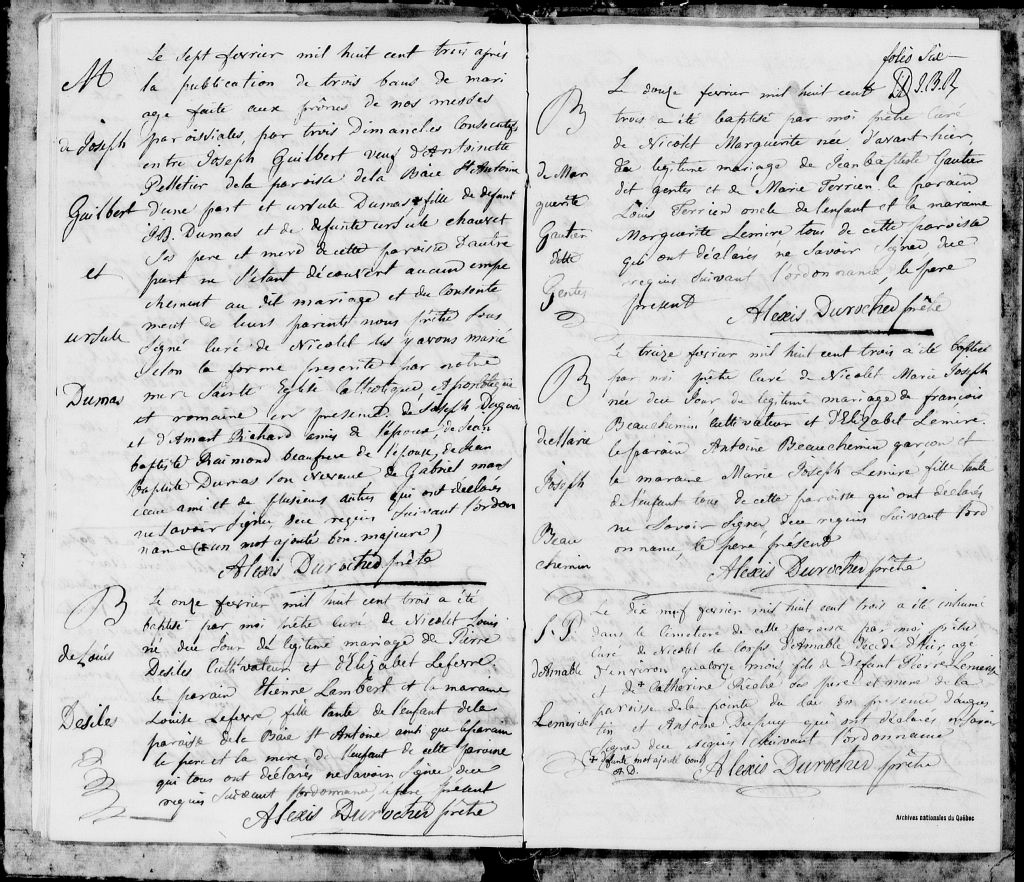 M
de Joseph
Guilbert
et
ursule
Dumas
Le sept fevrier mil huit cent trois après
la publication de trois bans de mari
age faite aux prônes de nos messes
paroissiales, par trois Dimanches Consecutifs
entre Joseph Guilbert veuf d'Antoinette
Pelletier de la paroisse de la Baie St Antoine
d'une part et ursule Dumas + fille de defunt
J.B. Dumas et de defunte ursule chauret
ses pere et mere de cette paroisse d'autre
part ne s'étant découvert aucun empe
chement au dit mariage et du Consente
ment de leurs parents nous prêtre sous
signé Curé de Nicolet les y avons marié
selon la forme prescrite par notre
mere Sainte Eglise Catholique, Apostolique
et romaine en presence de Joseph Duguai
et d'Amant Richard amis de l'epoux, de Jean
baptiste Raimond beaufrere de l'epouse, de Jean
baptiste Dumas son neveu de Gabriel mans
eau ami et de plusieurs autres qui ont declarés
ne savoir signer deue requis suivant l'ordon
nance (+ un mot ajouté bon. majeure)
Alexis Durocher prêtre
B
de Louis
Desiles
Le onze fevrier mil huit cent trois a été
baptisé par moi prêtre curé de Nicolet Louis
né du Jour du légitime mariage de Pierre
Desiles Cultivateur et d'Elizabet Lefevre
le parain Etienne Lambert et la maraine
Louise Lefevre, fille tante de l'enfant de la
paroisse de la Baie St Antoine ainsi que le parain
le pere et la mere de l'enfant de cette paroisse
qui tous ont declarés ne savoir signer deue
requis suivant l'ordonnance, le pere present
Alexis Durocher prêtre
folio Six
B
de Mar
guerite
Gautier
ditte
Gentes
Le douze fevrier mil huit cent
trois a été baptisé par moi prêtre Curé
de Nicolet Marguerite née d'avant hier
du legitime mariage de Jean baptiste Gautier
dit gentes et de Marie Terrien le parain
Louis Terrien oncle de l'enfant et la maraine
Marguerite Lemire tous de cette paroisse
qui ont déclarés ne savoir signer deue
requis suivant l'ordonnance, le pere
present
Alexis Durocher prêtre
B
de Marie
Joseph
Beau
chemin
Le treize fevrier mil huit cent trois a été baptisé
par moi prêtre Curé de Nicolet Marie Joseph
née du Jour, du legitime mariage de françois
Beauchemin Cultivateur et d'Elizabet Lemire.
le parain Antoine Beauchemin garçon et
la maraine Marie Joseph Lemire fille tante
de l'enfant tous de cette paroisse qui ont déclarés
ne savoir signer deue requis suivant l'ord
onnance, le peré présent
Alexis Durocher prêtre
S.
d'Amable
Lemerise
Le dix neuf fevrier mil huit cent trois a été inhumé
dans le Cimetiere de cette paroisse par moi prêtre
Curé de Nicolet le Corps d'Amable décédé d'hier, agé
d'environ quatorze mois fils de Défunt Pierre Lemerise
et de + Catherine ses pere et mere de la
paroisse de la pointe du lac en presence d'augus
tin et Antoine Dupuy qui ont declarés ne savoir
signer deue requis suivant l'ordonnance
(+ defunte mot ajouté bon)
A.D.
Alexis Durocher prêtre
Archives nationales du Québec